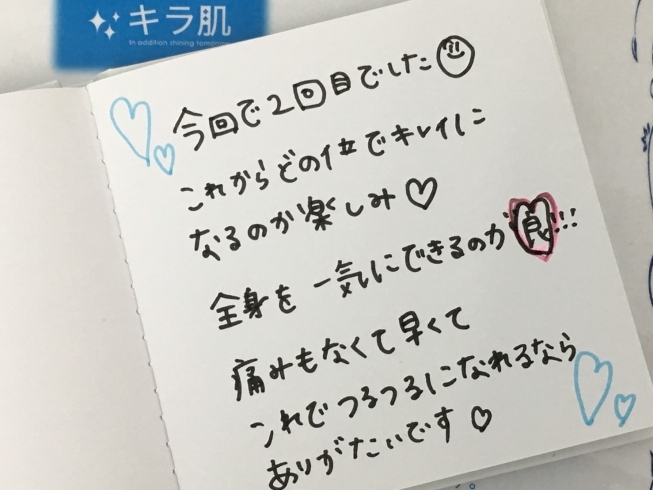 キラ肌
In addition shining tomorrow
今回で2回目でした
これからどの位でキレイに
なるのか楽しみ♡
全身を一気にできるのが良!!!
痛みもなくて早くて
これでつるつるになれるなら
ありがたいです♡